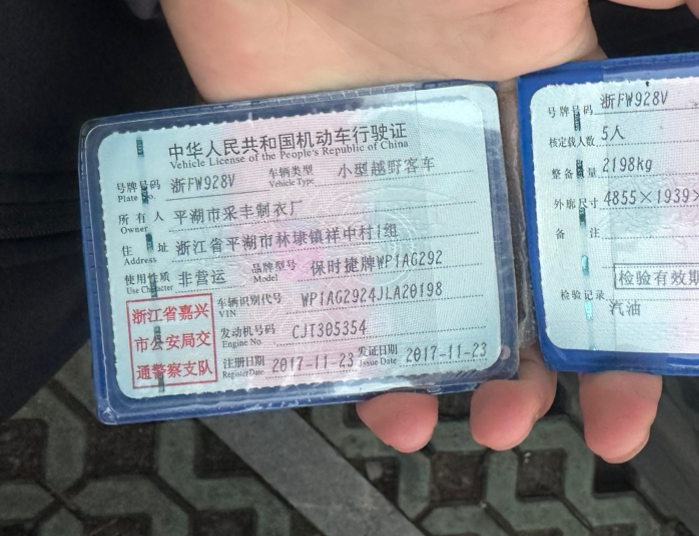 中华人民共和国机动车行驶证
Vehicle License of the People's Republic of China
号牌号码 浙FW928V 车辆类型 小型越野客车
Plate No. Vehicle Type
所有人 平湖市采丰制衣厂
Owner
住址 浙江省平湖市林埭镇祥中村1组
Address
使用性质 非营运 品牌型号 保时捷牌WP1AG292
Use Character Model
浙江省嘉兴
市公安局交
通警察支队
车辆识别代号 WP1AG2924JLA20198
VIN
发动机号码 CJT305354
Engine No.
注册日期 2017-11-23 发证日期 2017-11-23
Register Date Issue Date
号牌号码 浙FW928V
核定载人数 5人
整备质量 2198kg
外廓尺寸 4855×1939×
备注
检验有效期
检验记录
汽油